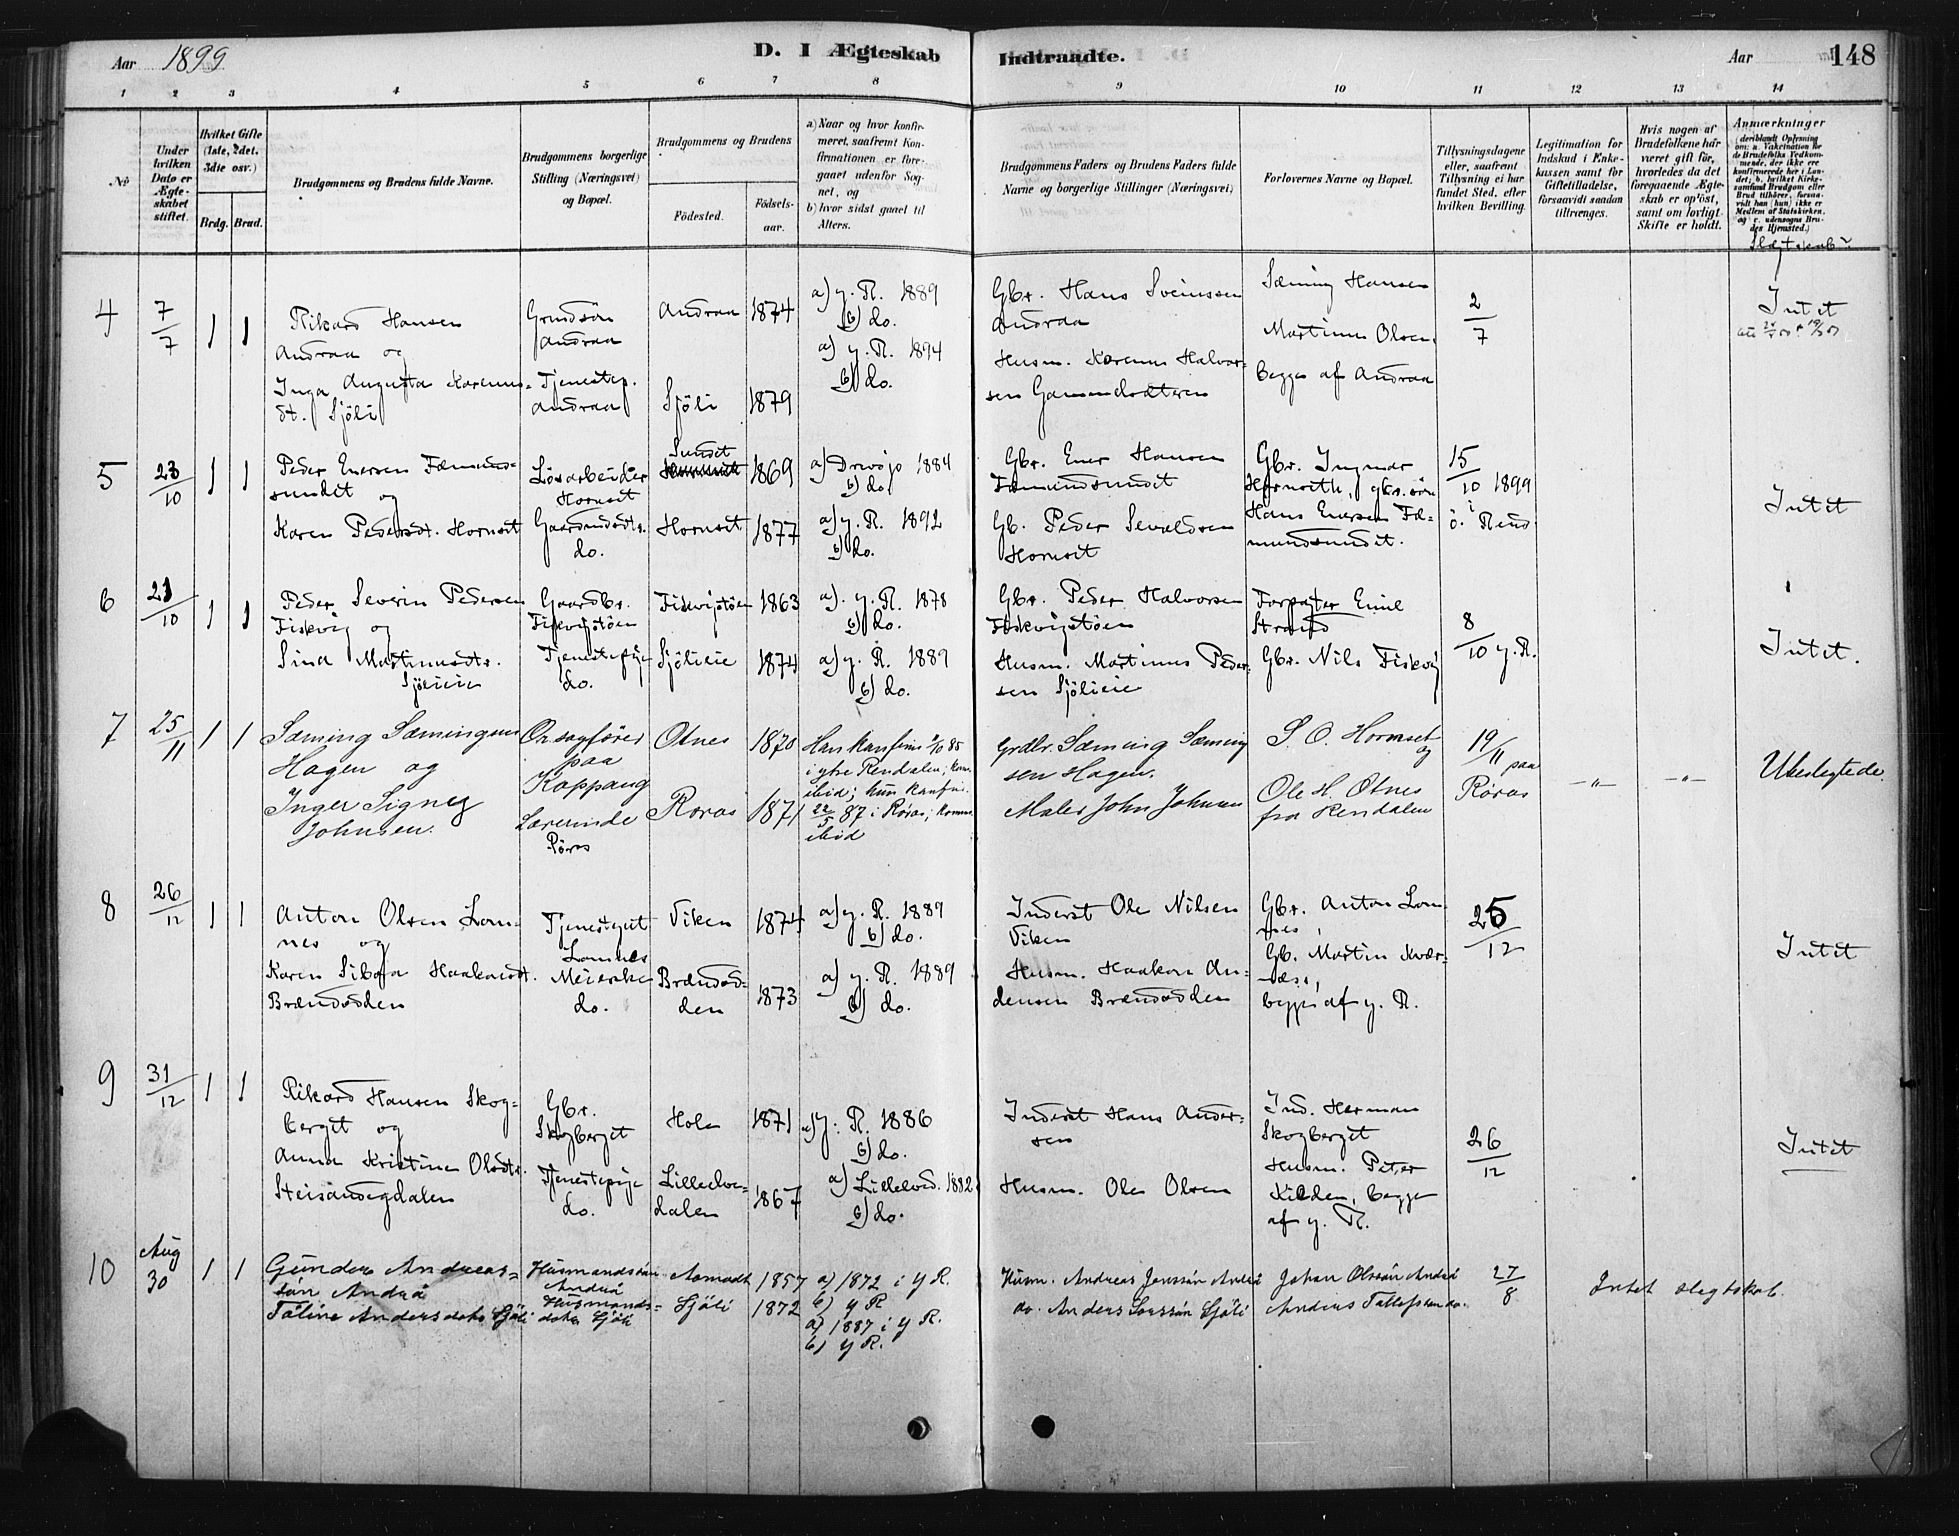 Aar 1899
D. I Ægteskab
Indtraadte.
Aar
148
1 2 3 4 5 6 7 8 9 10 11 12 13 14
No
Under hvilken Dato er Ægteskabet stiftet.
Hvilket Gifte (1ste, 2det, 3dte osv.)
Brdg. Brud.
Brudgommens og Brudens fulde Navne.
Brudgommens borgerlige Stilling (Næringsvei) og Bopæl.
Brudgommens og Brudens
Födested.
Födsels-aar.
a) Naar og hvor konfirmeret, saafremt Konfirmationen er foregaaet udenfor Sognet, og
b) hvor sidst gaaet til Alters.
Brudgommens Faders og Brudens Faders fulde Navne og borgerlige Stillinger (Næringsvei)
Forlovernes Navne og Bopæl.
Tillysningsdagene eller, saafremt Tillysning ei har fundet Sted, efter hvilken Bevilling.
Legitimation for Indskud i Enkekassen samt for Giftetilladelse, forsaavidt saadan tiltrænges.
Hvis nogen af Brudefolkene har været gift för, hvorledes da det foregaaende Ægteskab er oplöst, samt om lovligt Skifte er holdt.
Anmærkninger
Slegtskab
4
7/7
1 1
Rikard Hansen
Andraa og
Inga Augusta Karenus-
dt. Sjöli
Grudsön
Andraa
Tjenestep.
Andraa
Andraa
Sjöli
1874
1879
a) y. R. 1889
b) do.
a) y. R. 1894
b) do.
Gbr. Hans Sveinssen
Andraa
Husm. Karenus Halvor-
sen
Sæming Hansen
Martinus Olsen,
begge af Andraa
2/7
Intet
5
23/10
1 1
Peder Enersen Fæmund-
sundet og
Karen Pedersdt. Hornset
Lösarbeider
Hornset
Gaardmdsdtr.
do.
Sundet
Hornset
1869
1877
a) Drevsjö 1884
b) do.
a) y. R. 1892
b) do.
Gbr. Ener Hansen
Fæmundsundet
Gb. Peder Sevaldsen
Hornset
Gbr. Ingmar
Hornseth, gbr. sön
Hans Enersen Fæ-
mundsundet.
15/10 1899
i
ö. Rend
Intet
6
21/10
1 1
Peder Severin Pedersen
Fiskvig og
Sina Martinusdtr.
Sjölieie
Gaardbr.
Fiskvigtöen
Tjenestepige
do.
Fiskvigtöen
Sjölieie
1863
1874
a). y. R. 1878
b) do.
a) y. R. 1889
b) do.
Gbr. Peder Halvorsen
Fiskvigtöen
Husm. Martinus Peder-
sen Sjölieie
Forpagter Emil
Strand
Gbr. Nils Fiskvig
8/10 y. R.
Intet.
7
25/11
1 1
Sæming Sæmingsen
Hagen og
Inger Signey
Johnsen.
Ov.sagförer
paa
Koppang
Lærerinde
Röros
Otnes
Roros
1870
1871
Han konfirm. 85
i ytre Rendalen; kom.
ibid; hun konfir.
22/5 87 i Röros; komm.
ibid
Grdbr. Sæming Sæming
sen Hagen.
Maler John Johnsen
S. O. Hornset
og
Ole H. Otnes
fra Rendalen
19/11 paa
Röros
—"— —"—
Ubeslegtede.
8
26/12
1 1
Anton Olsen Lom-
nes og
Karen Sibora Haakensdt.
Brændodden
Tjenestegut
Lomnes
Meierske
do.
Viken
Brændod-
den
1874
1873
a) y. R. 1889
b) do.
a) y. R. 1889
b) do.
Inderst Ole Nilsen
Viken
Husm. Haakon An-
densen Brændodden
Gbr. Anton Lom-
nes,
Gb. Martin Kvær-
næss,
begge af y. R.
25/12
Intet
9
31/12
1 1
Rikard Hansen Skog-
berget og
Anna Kristine Olsdtr.
Gbr.
Skogberget
Tjenestepige
do.
Holm
Lilleelve-
dalen
1871
1867
a) y. R. 1886
b) do.
a) Lilleelved. 1882
b) do.
Inderst Hans Ander-
sen
Husm. Ole Olsen
Ind. Herman
Skogberget
Husm. Peter
Kilden, begge
af y. R.
26/12
Intet
10
Aug
30
1 1
Gunder Andreas-
sön Andrå
Taline Andersdatr Sjöli
Husmandssön
Andrå
Husmands-
dater Sjöli
Aamodt
Sjöli
1857
1872
a) 1872 i y R.
b) y R
a) 1887 i y R.
b) y R.
Husm. Andreas Jenssön Andrå
do. Anders Larssön Sjöli
Johan Olssön Andrå
Anders Tollefsen do.
27/8
Intet slegtskab.